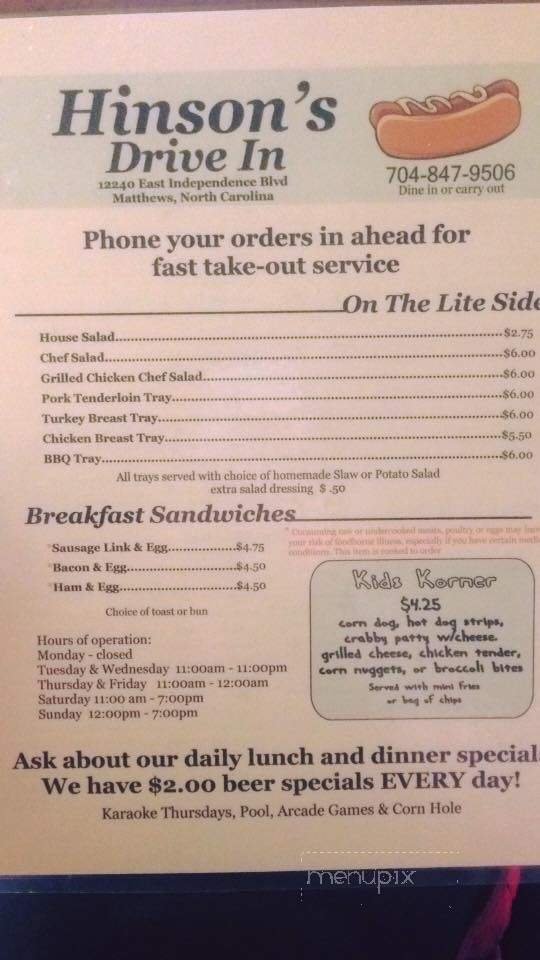 Hinson's
Drive In
12240 East Independence Blvd
Matthews, North Carolina
704-847-9506
Dine in or carry out
Phone your orders in ahead for
fast take-out service
On The Lite Side
House Salad...$2.75
Chef Salad...$6.00
Grilled Chicken Chef Salad...$6.00
Pork Tenderloin Tray...$6.00
Turkey Breast Tray...$6.00
Chicken Breast Tray...$5.50
BBQ Tray...$6.00
All trays served with choice of homemade Slaw or Potato Salad
extra salad dressing $ .50
Breakfast Sandwiches
* Consuming raw or undercooked meats, poultry or eggs may
your risk of foodborne illness, especially if you have certain
conditions. This item is cooked to order
*Sausage Link & Egg...$4.75
*Bacon & Egg...$4.50
*Ham & Egg...$4.50
Choice of toast or bun
Hours of operation:
Monday - closed
Tuesday & Wednesday 11:00am - 11:00pm
Thursday & Friday 11:00am - 12:00am
Saturday 11:00 am - 7:00pm
Sunday 12:00pm - 7:00pm
Kids Korner
$4.25
corn dog, hot dog strips,
crabby patty w/cheese.
grilled cheese, chicken tender,
corn nuggets, or broccoli bites
Served with mini fries
or bag of chips
Ask about our daily lunch and dinner special
We have $2.00 beer specials EVERY day!
Karaoke Thursdays, Pool, Arcade Games & Corn Hole
menupix